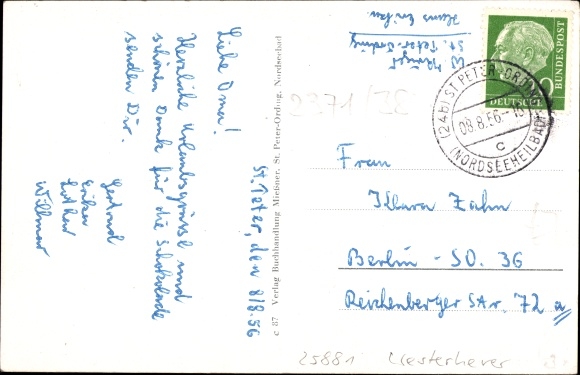 St. Peter, den 8/8.56
Liebe Oma!
Herzliche Urlaubsgrüsse und
schönen Dank für die Schokolade
senden Dir.
Gertrud
Lothar
Willmar
c 87 Verlag Buchhandlung Mießner, St. Peter-Ording, Nordseebad
St. Peter-Ording
Haus
DEUTSCHE BUNDESPOST
(24b) ST PETER-ORDING
08.8.56
c
(NORDSEEHEILBAD)
2371/3E
Frau
Zahn
Berlin - SO. 36
Reichenberger Str. 72 a
25881 Westerhever